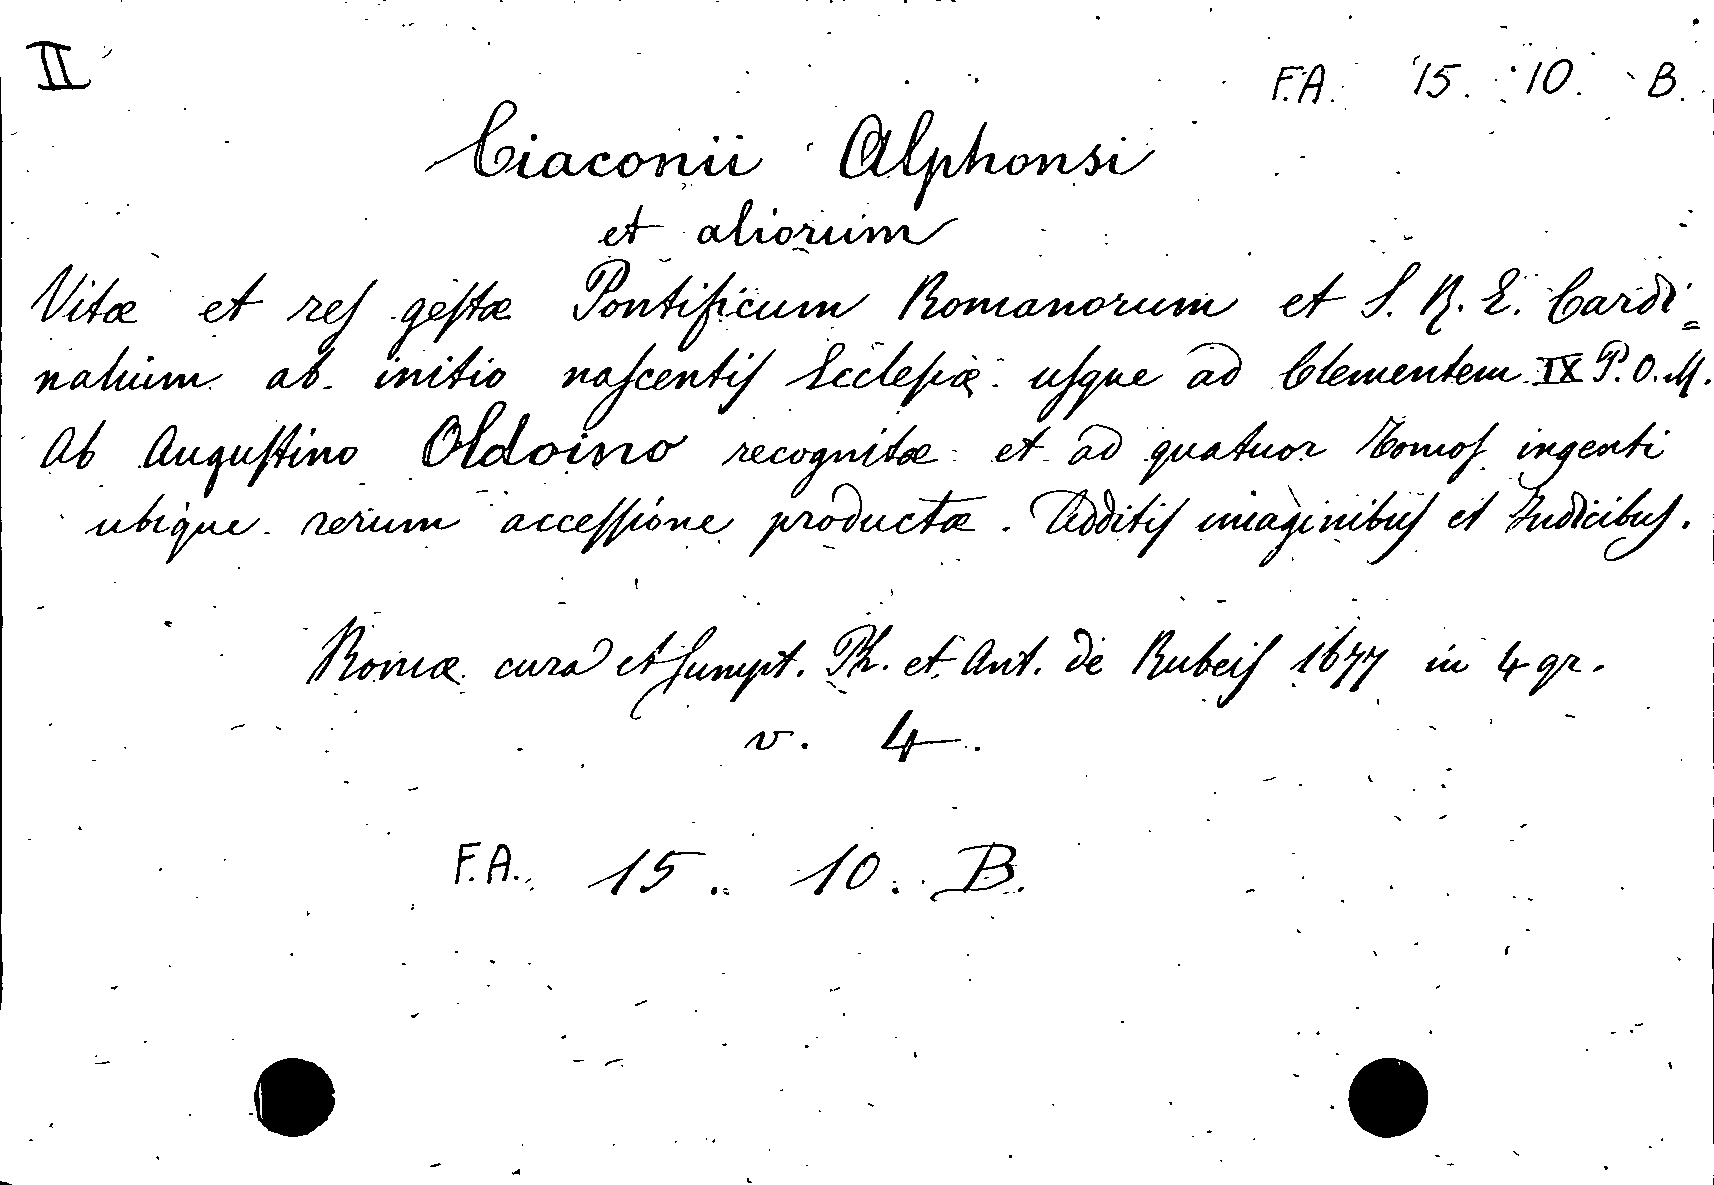 II
F.A. 15. 10. B.
Ciaconii Alphonsi
et aliorum
Vitæ et reſ geſtæ Pontificum Romanorum et S. R. E. Cardi=
nalium ab initio naſcentiſ Eccleſiæ uſque ad Clementem IX P. O. M.
Ab Auguſtino Oldoino recognitæ et ad quatuor Tomoſ ingenti
ubique rerum acceſſione productæ. Additiſ imaginibuſ et Indicibuſ.
Romæ cura et ſumpt. Ph. et Ant. de Rubeiſ 1677 in 4 gr.
v. 4.
F.A. 15. 10. B.